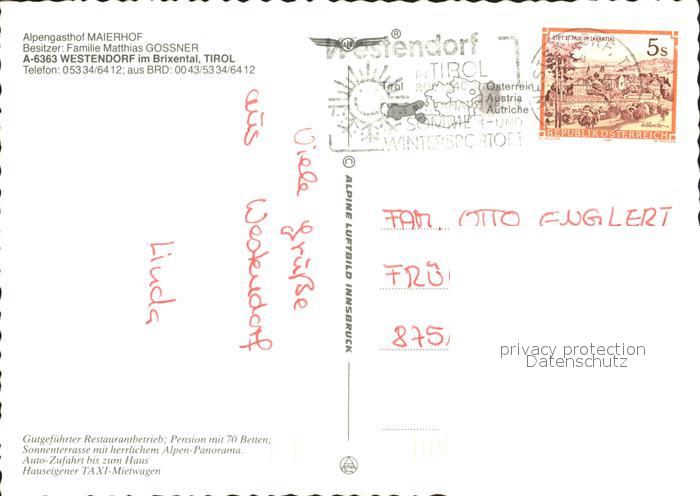 Alpengasthof MAIERHOF
Besitzer: Familie Matthias GOSSNER
A-6363 WESTENDORF im Brixental, TIROL
Telefon: 05334/6412; aus BRD: 0043/5334/6412
Westendorf
in TIROL
SOMMER-UND
WINTERSPORTORT
®
Tirol
Österreich
Austria
Autriche
STIFT ST. PAUL IM LAVANTTAL
5s
REPUBLIK ÖSTERREICH
Viele Grüße
aus Westendorf
Linda
© ALPINE LUFTBILD INNSBRUCK
FAM. OTTO ENGLERT
FRÜ
875
privacy protection
Datenschutz
Gutgeführter Restaurantbetrieb; Pension mit 70 Betten;
Sonnenterrasse mit herrlichem Alpen-Panorama.
Auto-Zufahrt bis zum Haus
Hauseigener TAXI-Mietwagen